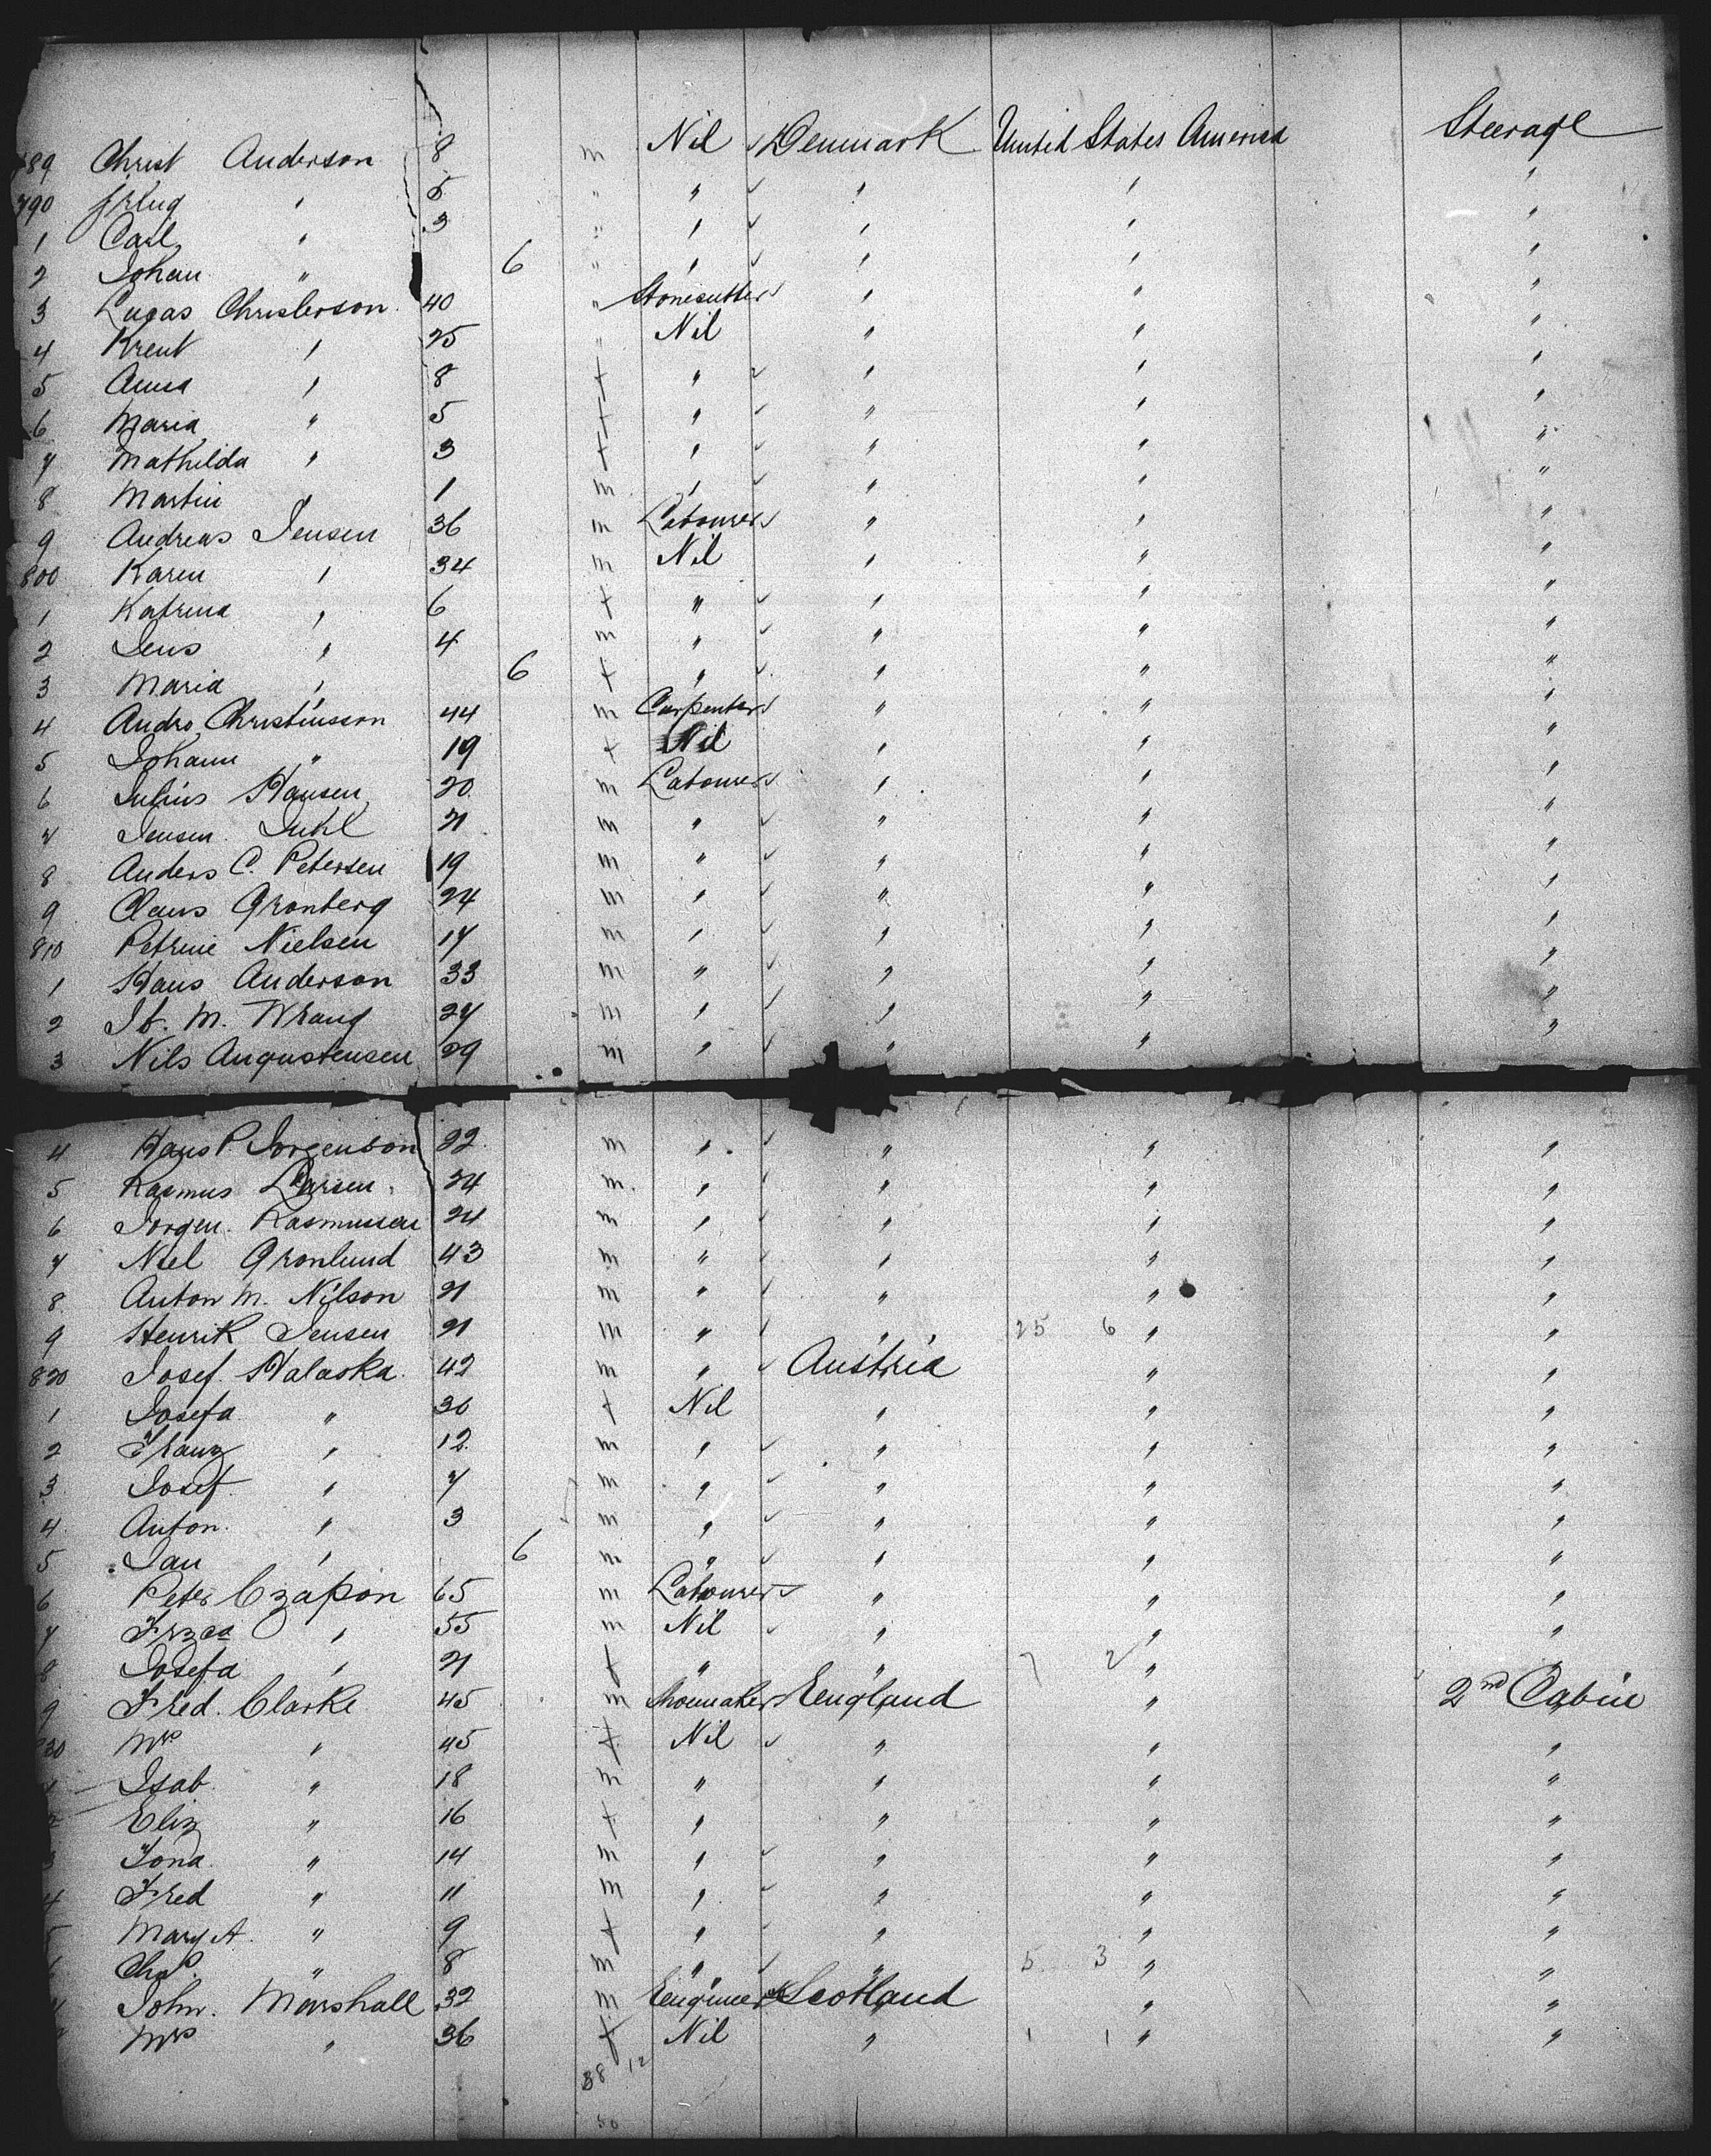 789 Christ Anderson 8 m Nil Denmark United States America Steerage
790 " 5 " " " " "
1 Carl " 3 " " " " "
2 Johan " 6 " " " " "
3 Lugas Christerson 40 " Stonecutter " " "
4 Krent " 25 " Nil " " "
5 Anna " 8 f " " " "
6 Maria " 5 f " " " "
7 Mathilda " 3 f " " " "
8 Martin " 1 m " " " "
9 Andreas Jensen 36 m Labourer " " "
800 Karen " 34 m Nil " " "
1 Katrina " 6 f " " " "
2 Jens " 4 m " " " "
3 Maria " 6 f " " " "
4 Andro Christinsson 44 m Carpenter " " "
5 Johann " 19 f Nil " " "
6 Julius Hansen 20 m Labourer " " "
7 Jensen Juhl 21 m " " " "
8 Anders C. Petersen 19 m " " " "
9 Claus Gronberg 24 m " " " "
810 Petrine Nielsen 17 m " " " "
1 Hans Anderson 33 m " " " "
2 Jb. M. Wrang 27 m " " " "
3 Nils Augustensen 29 m " " " "
4 Hans P. Jorgenson 22 m " " " "
5 Rasmus Larsen 24 m " " " "
6 Jorgen Rasmussen 24 m " " " "
7 Niel Gronlund 43 m " " " "
8 Anton M. Nilson 21 m " " " "
9 Henrik Jensen 21 m " " 25 6 " "
820 Josef Halaska 42 m " Austria " "
1 Josefa " 30 f Nil " " "
2 Franz " 12 m " " " "
3 Josef " 7 m " " " "
4 Anton " 3 m " " " "
5 Jan " 6 m " " " "
6 Peter Czapon 65 m Labourer " " "
7 " 55 m Nil " " "
8 Josefa " 21 f " " 7 2 " "
9 Fred. Clarke 45 m Shoemaker England " 2nd Cabin
830 Mrs " 45 f Nil " " "
1 Isab " 18 m " " " "
2 Eliz " 16 f " " " "
3 Jona " 14 m " " " "
4 Fred " 11 m " " " "
5 Mary A. " 9 f " " " "
6 Chas " 8 m " " 5 3 " "
7 John. Marshall 32 m Engineer Scotland " "
Mrs " 36 f Nil " 1 1 " "
38 12
50